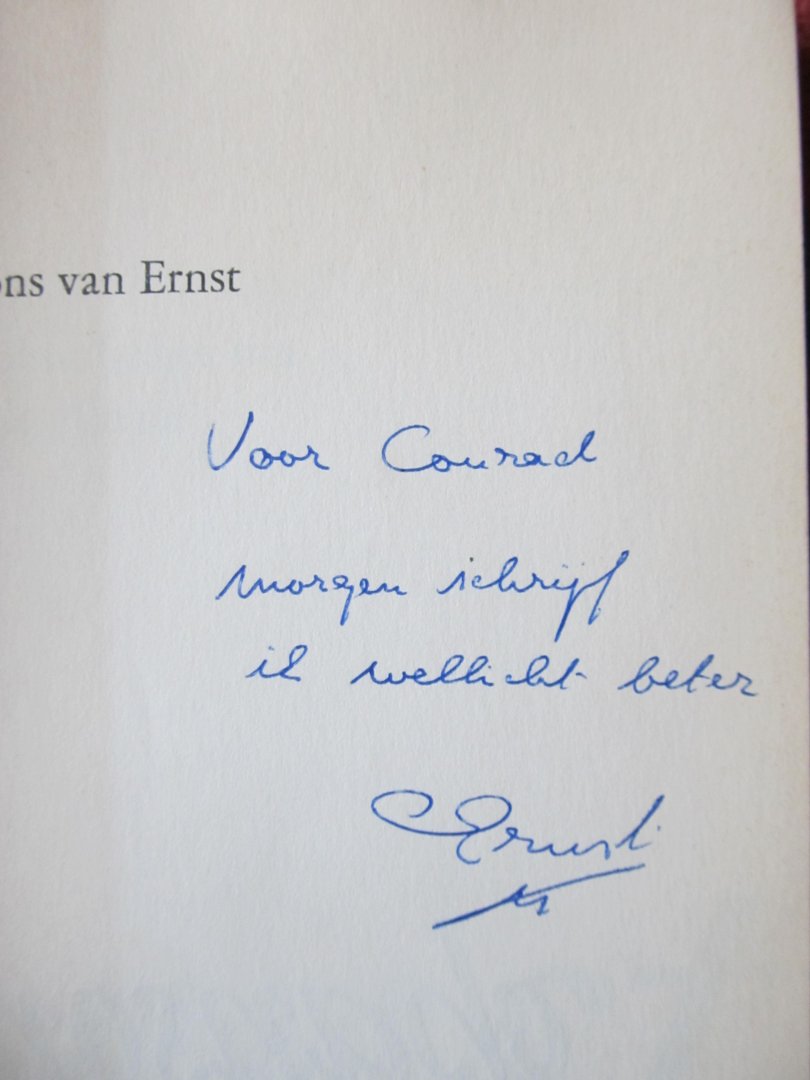 ons van Ernst
Voor Conrad
morgen schrijf
ik wellicht beter
Ernst